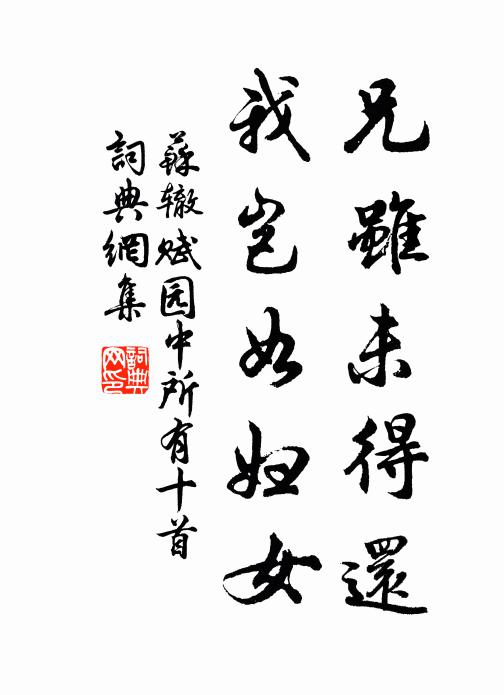 兄雖未得還
我豈如婦女
蘇辙赋园中所有十首
詞典網集
詞典网印